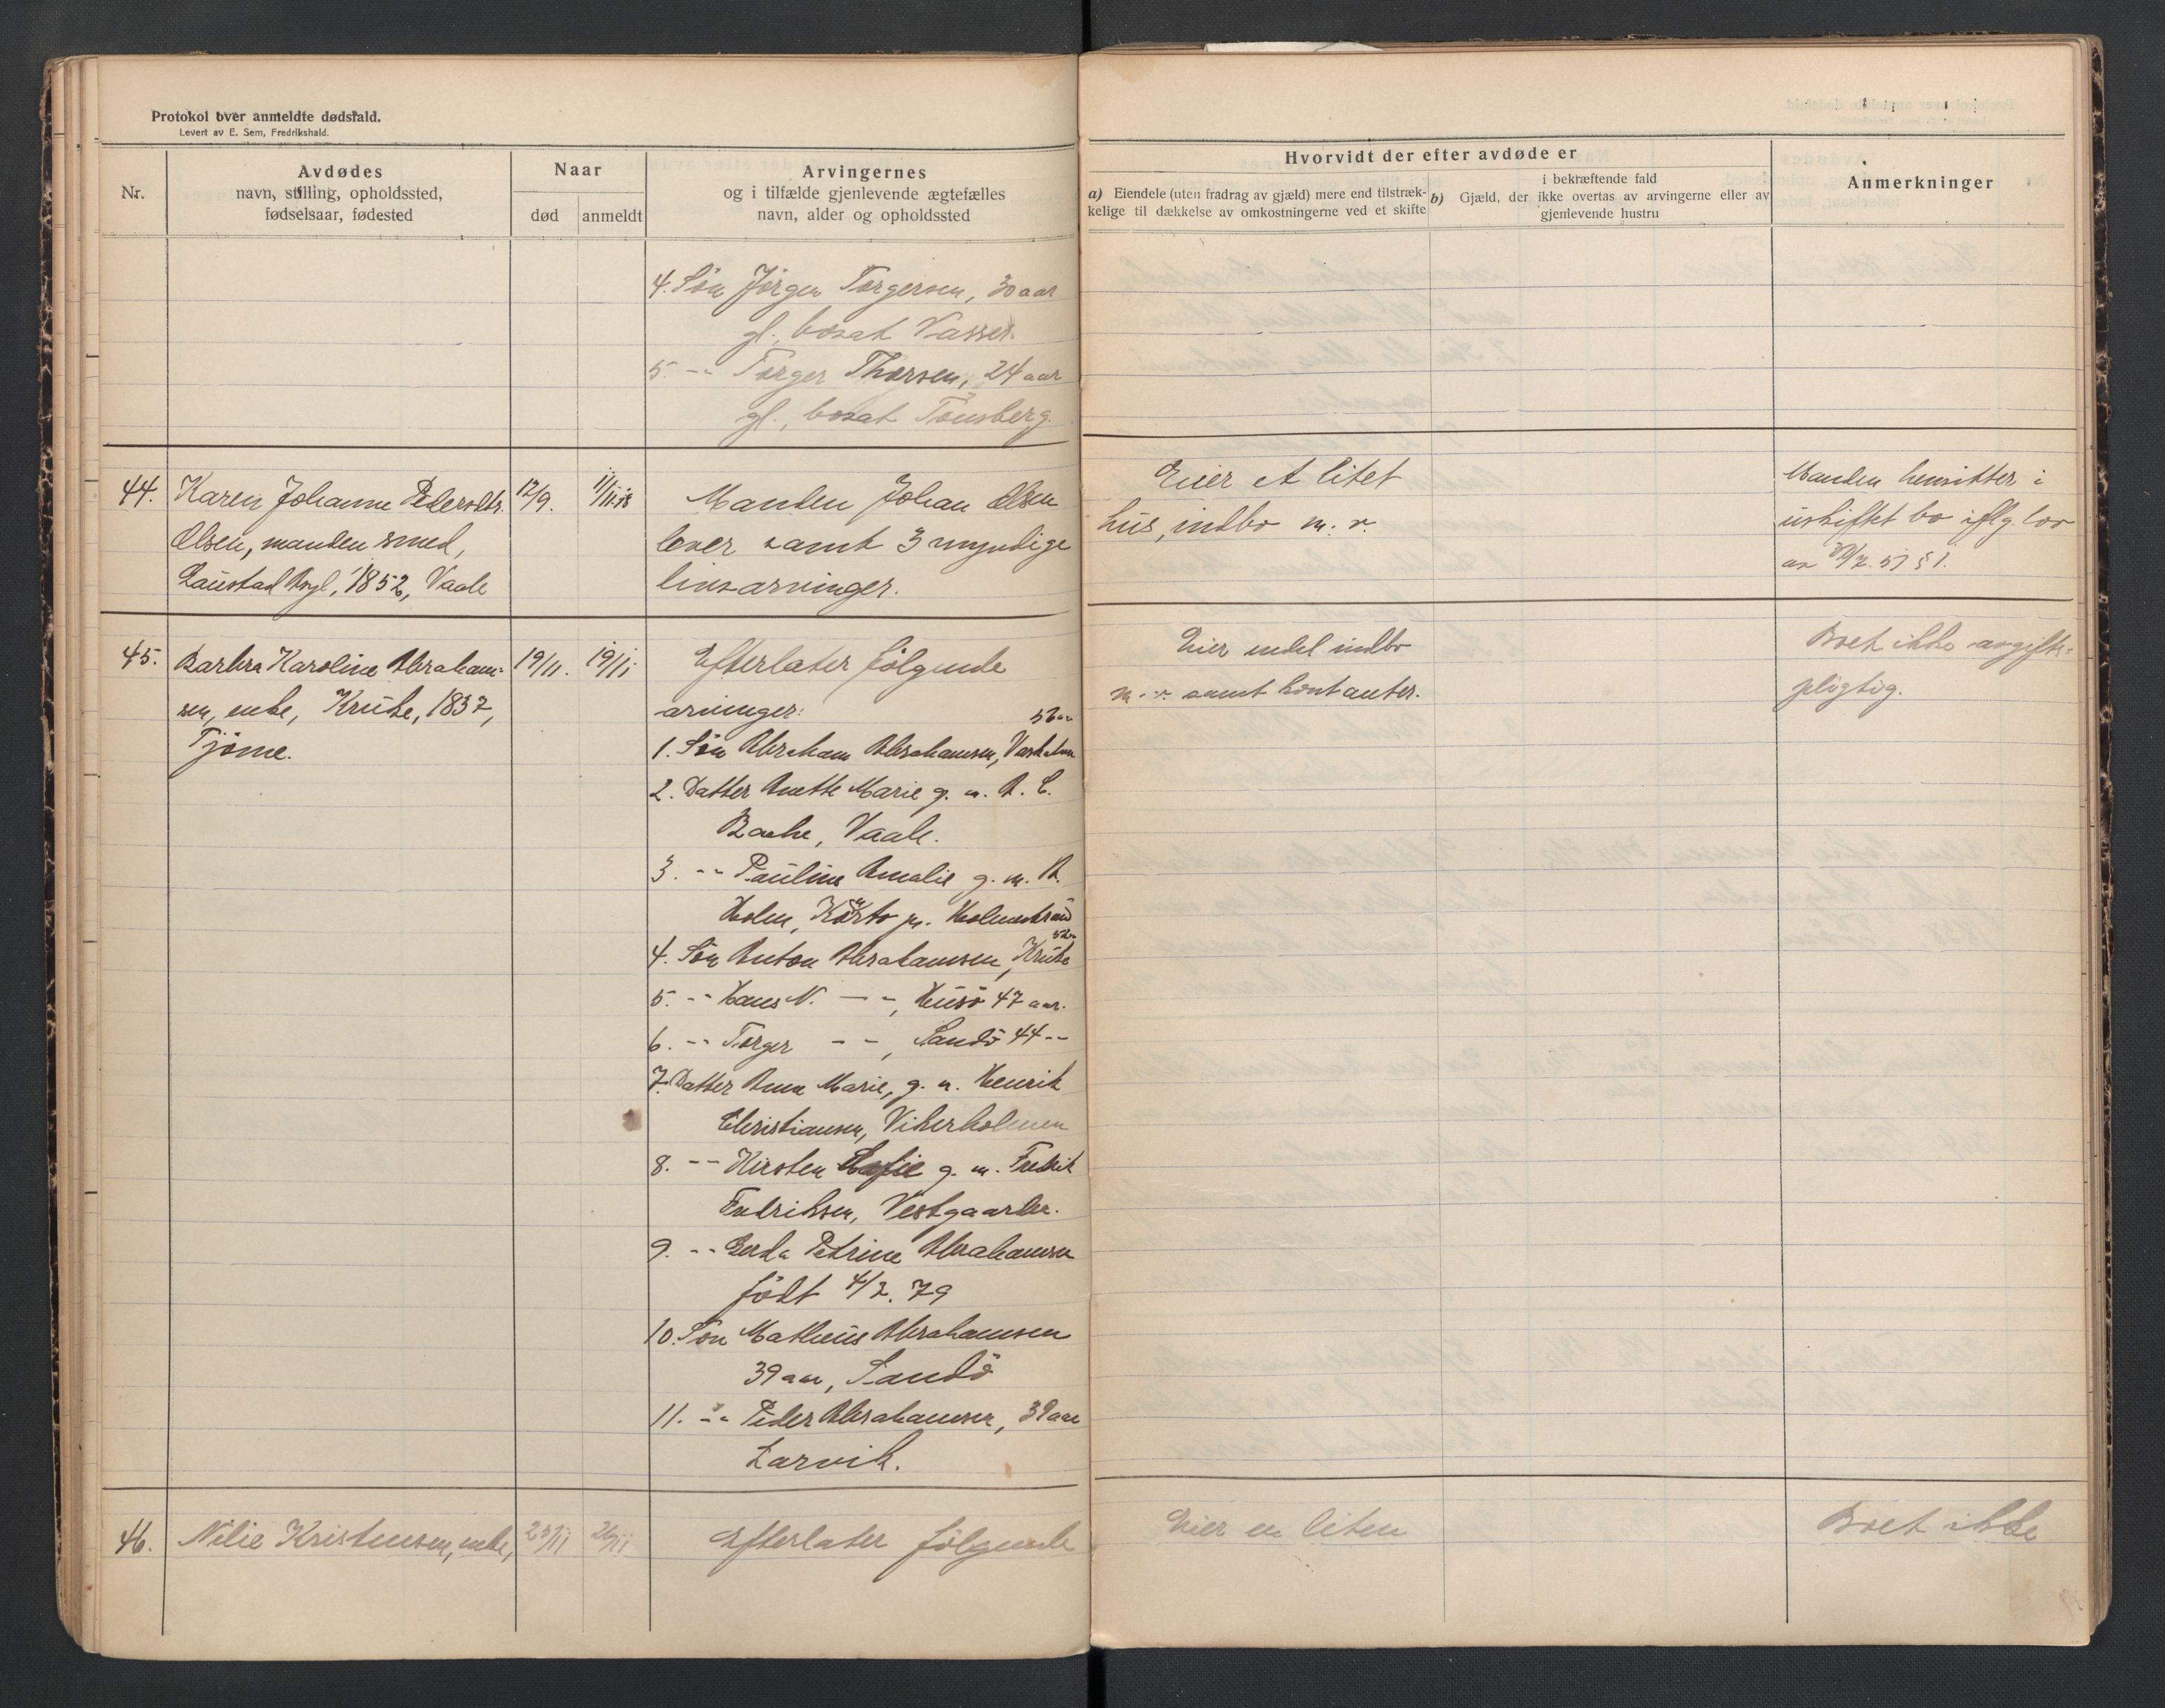 Protokol over anmeldte dødsfald.
Levert av E. Sem, Fredrikshald.
Nr.
Avdødes
navn, stilling, opholdssted,
fødselsaar, fødested
Naar
død
anmeldt
Arvingernes
og i tilfælde gjenlevende ægtefælles
navn, alder og opholdssted
Hvorvidt der efter avdøde er
a) Eiendele (uten fradrag av gjæld) mere end tilstræk-
kelige til dækkelse av omkostningerne ved et skifte
i bekræftende fald
b) Gjæld, der ikke overtas av arvingerne eller av
gjenlevende hustru
Anmerkninger
4. Søn Jørgen Torgersen, 30 aar
gl., bosat Vasser.
5. -"- Torger Thorsen, 24 aar
gl., bosat Tønsberg.
44.
Karen Johanne Pedersdtr.
Olsen, manden smed,
1852, Vaale
12/9.
11/11.18
Manden Johan Olsen
lever samt 3 myndige
livsarvinger.
Eier et litet
hus, indbo m. v.
Manden hensitter i
uskiftet bo iflg. lov
av 51 § 1.
45.
Barbra Karoline Abraham-
sen, enke, Kruke, 1837,
Tjøme.
19/11.
19/11
Efterlater følgende
arvinger:
1. Søn Abraham Abrahamsen,
2. Datter Anette Marie g. m. A. C.
Bache, Vaale.
3. -"- Pauline Amalie g. m. A.
Holm, pr. Holmestrand
4. Søn Anton Abrahamsen, Kruke
5. -"- Hans N. -"-, Husø 47 aar.
6. -"- Torger -"-, Sandø 44 -"-
7. Datter Anna Marie, g. m. Henrik
Christiansen, Vikerholmen
8. -"- Kirsten Sofie g. m. Fredrik
Fredriksen, Vestgaarden.
9. -"- Gerda Petrine Abrahamsen
født 4/2. 79
10. Søn Matheus Abrahamsen
39 aar, Sandø
11. -"- Peder Abrahamsen, 39 aar
Larvik.
Eier endel indbo
m. v. samt kontanter.
Boet ikke avgifts-
pligtig.
46.
Nilie Kristensen, enke,
23/11
26/11
Efterlater følgende
Eier en liten
Boet ikke